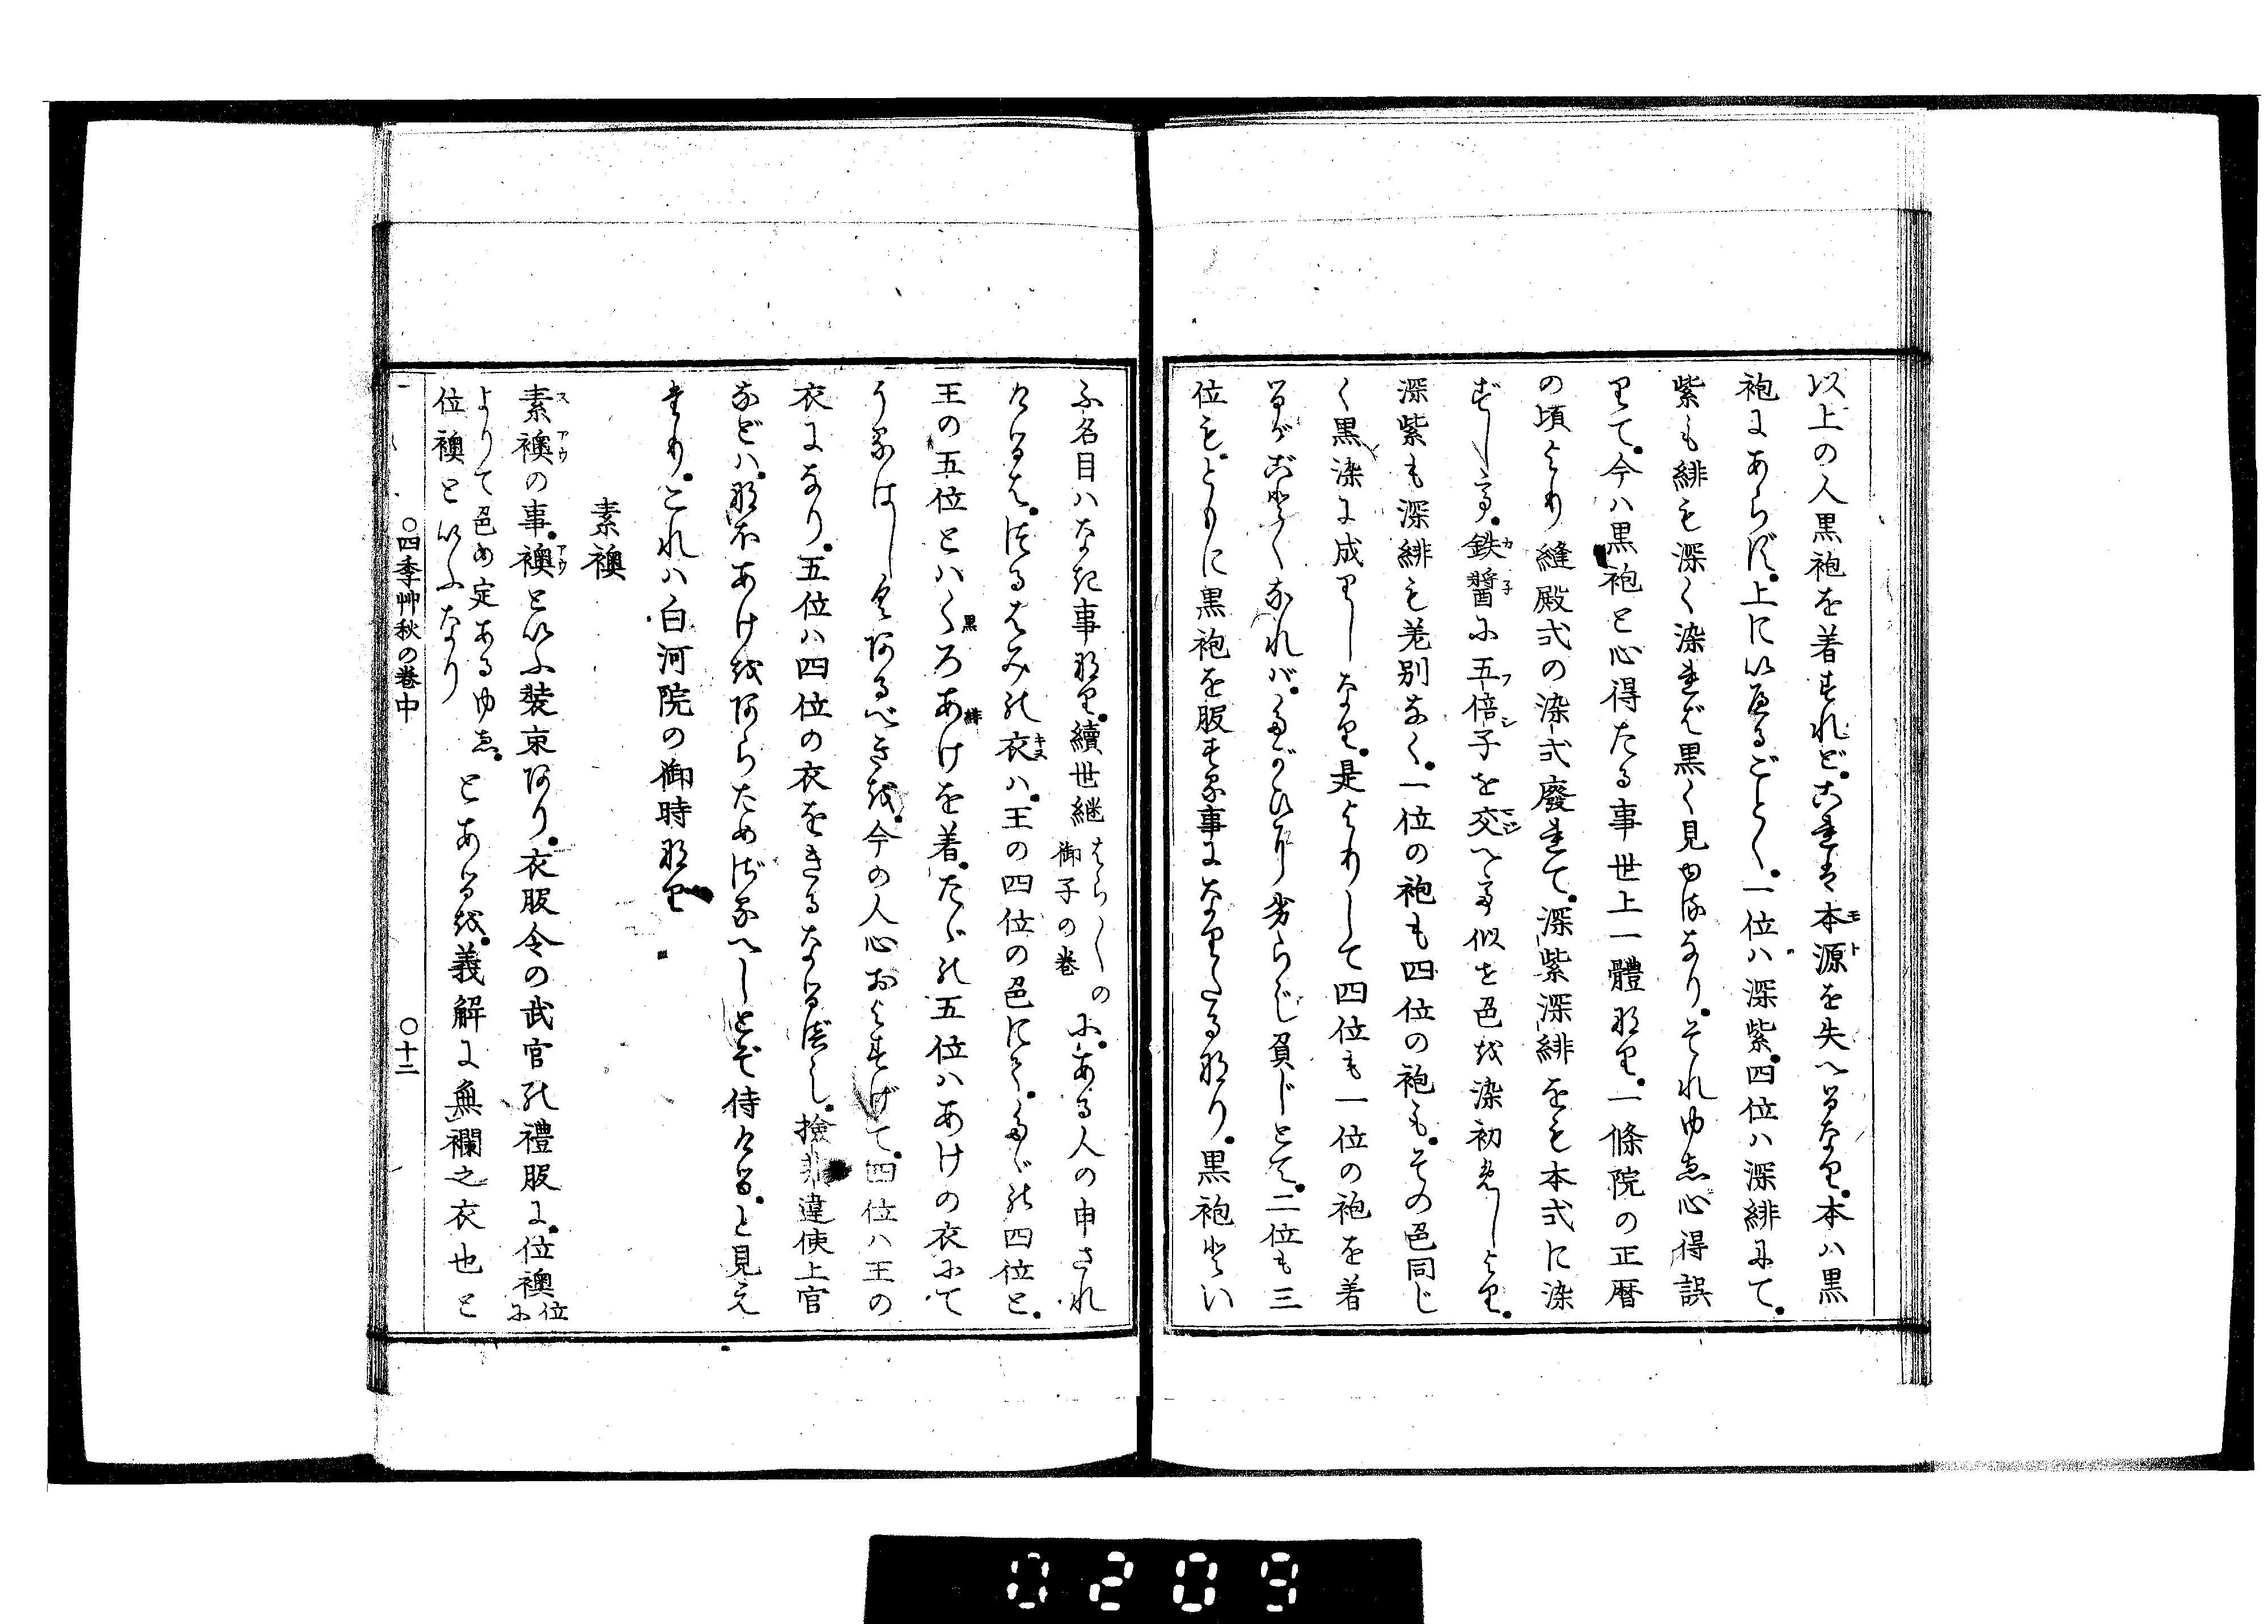 以上の人黒袍を着すれど。古れは本源を失へるなり。本ハ黒
袍にあらず。上にいへるごとく。一位ハ深紫。四位ハ深緋にて。
紫も緋も深く染れば黒く見ゆるなり。それゆゑ心得誤
りて。今ハ黒袍と心得たる事世上一體なり。一條院の正暦
の頃より縫殿式の染式廢れて。深紫深緋をも本式に染
ずして。鉄醤に五倍子を交へて似せ色を染初めしより。
深紫も深緋も差別なく。一位の袍も四位の袍も。その色同じ
く黒染に成りしなり。是よりして四位も一位の袍を着
るがごとくなれバ。たがひに劣らじ負じとて。二位も三
位も。ともに黒袍を服する事になりたるなり。黒袍とい
ふ名目ハなき事なり。續世継はら〳〵の御子の巻に。ある人の申され
けるは。つるはみの衣ハ。王の四位の色にて。たゞの四位と。
王の五位とハくろあけを着。たゞの五位ハあけの衣にて
うるはしくあるべきを。今の人心およすげて。四位ハ王の
衣になり。五位ハ四位の衣をきるなるべし。撿非違使上官
などハ。なほあけをあらためざるべしとぞ侍ける。と見え
たり。これハ白河院の御時なり
素襖
素襖の事。襖といふ装束あり。衣服令の武官の禮服に。位襖位に
よりて色め定あるゆゑ。位襖といふなりとあるを。義解に無襴之衣也と
〇四季艸秋の巻中 〇十二
0209